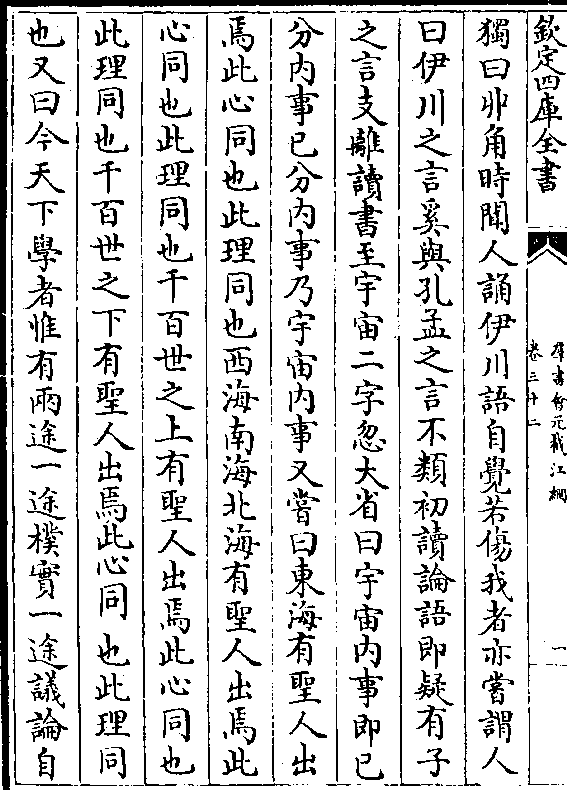 欽定四庫全書
羣書會元截江網
卷三十二
一
獨曰丱角時聞人誦伊川語自覺若傷我者亦嘗謂人
曰伊川之言奚與孔孟之言不類初讀論語即疑有子
之言支離讀書至宇宙二字忽大省曰宇宙内事即已
分内事已分内事乃宇宙内事又嘗曰東海有聖人出
焉此心同也此理同也西海南海北海有聖人出焉此
心同也此理同也千百世之上有聖人出焉此心同也
此理同也千百世之下有聖人出焉此心同也此理同
也又曰今天下學者惟有兩途一途樸實一途議論自